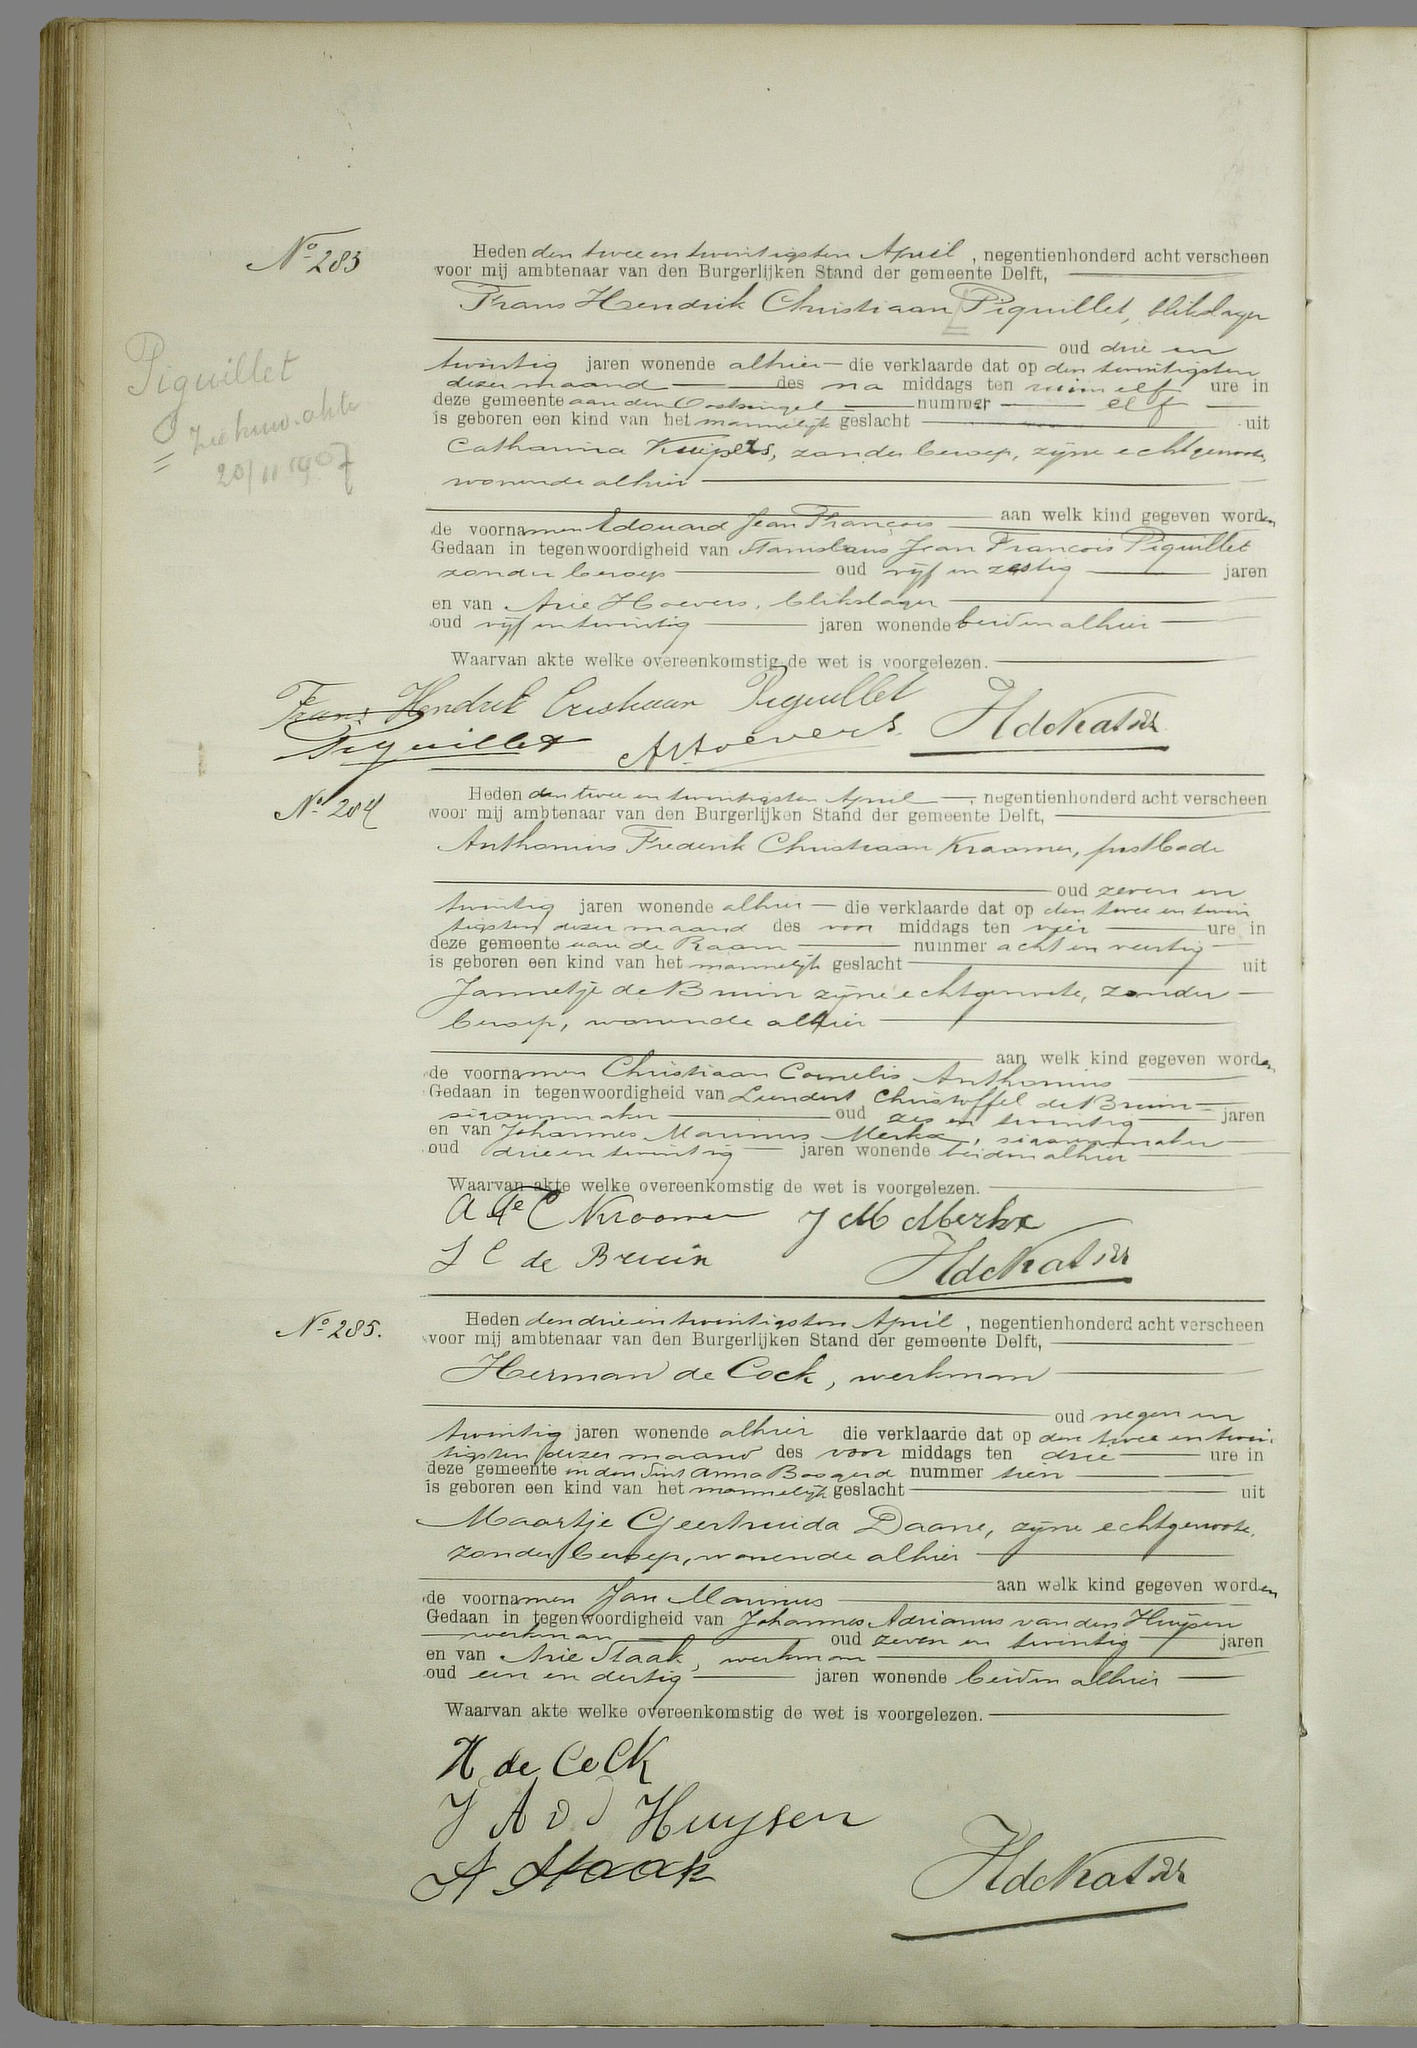 No 283
Heden den twee en twintigsten April, negentienhonderd acht verscheen
voor mij ambtenaar van den Burgerlijken Stand der gemeente Delft,
Frans Hendrik Christiaan Piquillet, blikslager
oud drie en
twintig jaren wonende alhier die verklaarde dat op den twintigsten
dezer maand des na middags ten ruim elf ure in
deze gemeente aan den Oostsingel nummer elf
is geboren een kind van het mannelijk geslacht uit
Catharina Kuipers, zonder beroep, zijne echtgenoote,
wonende alhier
aan welk kind gegeven worden
de voornamen Edouard Jean François
Gedaan in tegenwoordigheid van Stanislaus Jean François Piquillet
zonder beroep oud vijf en zestig jaren
en van Arie Hoevers, blikslager
oud vijf en twintig jaren wonende beiden alhier
Waarvan akte welke overeenkomstig de wet is voorgelezen.
Piquillet
Zie huw. akte
20/11 1907
Frans Hendrik Cristiaan Piquillet
Piquillet A Hoevers.
No 284
Heden den twee en twintigsten April, negentienhonderd acht verscheen
voor mij ambtenaar van den Burgerlijken Stand der gemeente Delft,
Anthonius Frederik Christiaan Kraamer, postbode
oud zeven en
twintig jaren wonende alhier die verklaarde dat op den twee en twin
tigsten dezer maand des voor middags ten vier ure in
deze gemeente aan de Raam nummer acht en veertig
is geboren een kind van het mannelijk geslacht uit
Jannetje de Bruin zijne echtgenoote, zonder
beroep, wonende alhier
aan welk kind gegeven worden
de voornamen Christiaan Cornelis Anthonius
Gedaan in tegenwoordigheid van Leendert Christoffel de Bruin
sigarenmaker oud zes en twintig jaren
en van Johannes Marinus Merkx, sigarenmaker
oud drie en twintig jaren wonende beiden alhier
Waarvan akte welke overeenkomstig de wet is voorgelezen.
J M Merkx
L C de Bruin
No 285.
Heden den drie en twintigsten April, negentienhonderd acht verscheen
voor mij ambtenaar van den Burgerlijken Stand der gemeente Delft,
Herman de Cock, werkman
oud negen en
twintig jaren wonende alhier die verklaarde dat op den twee en twin
tigsten dezer maand des voor middags ten drie ure in
deze gemeente in den Sint Anna Boogerd nummer tien
is geboren een kind van het mannelijk geslacht uit
Maartje Geertruida Daane, zijne echtgenoote,
zonder beroep, wonende alhier
aan welk kind gegeven worden
de voornamen Jan Marinus
Gedaan in tegenwoordigheid van Johannes Adrianus van den Huijsen
werkman oud zeven en twintig jaren
en van Arie Staak, werkman
oud een en dertig jaren wonende beiden alhier
Waarvan akte welke overeenkomstig de wet is voorgelezen.
H de Cock
J A v d Huijsen
A Staak